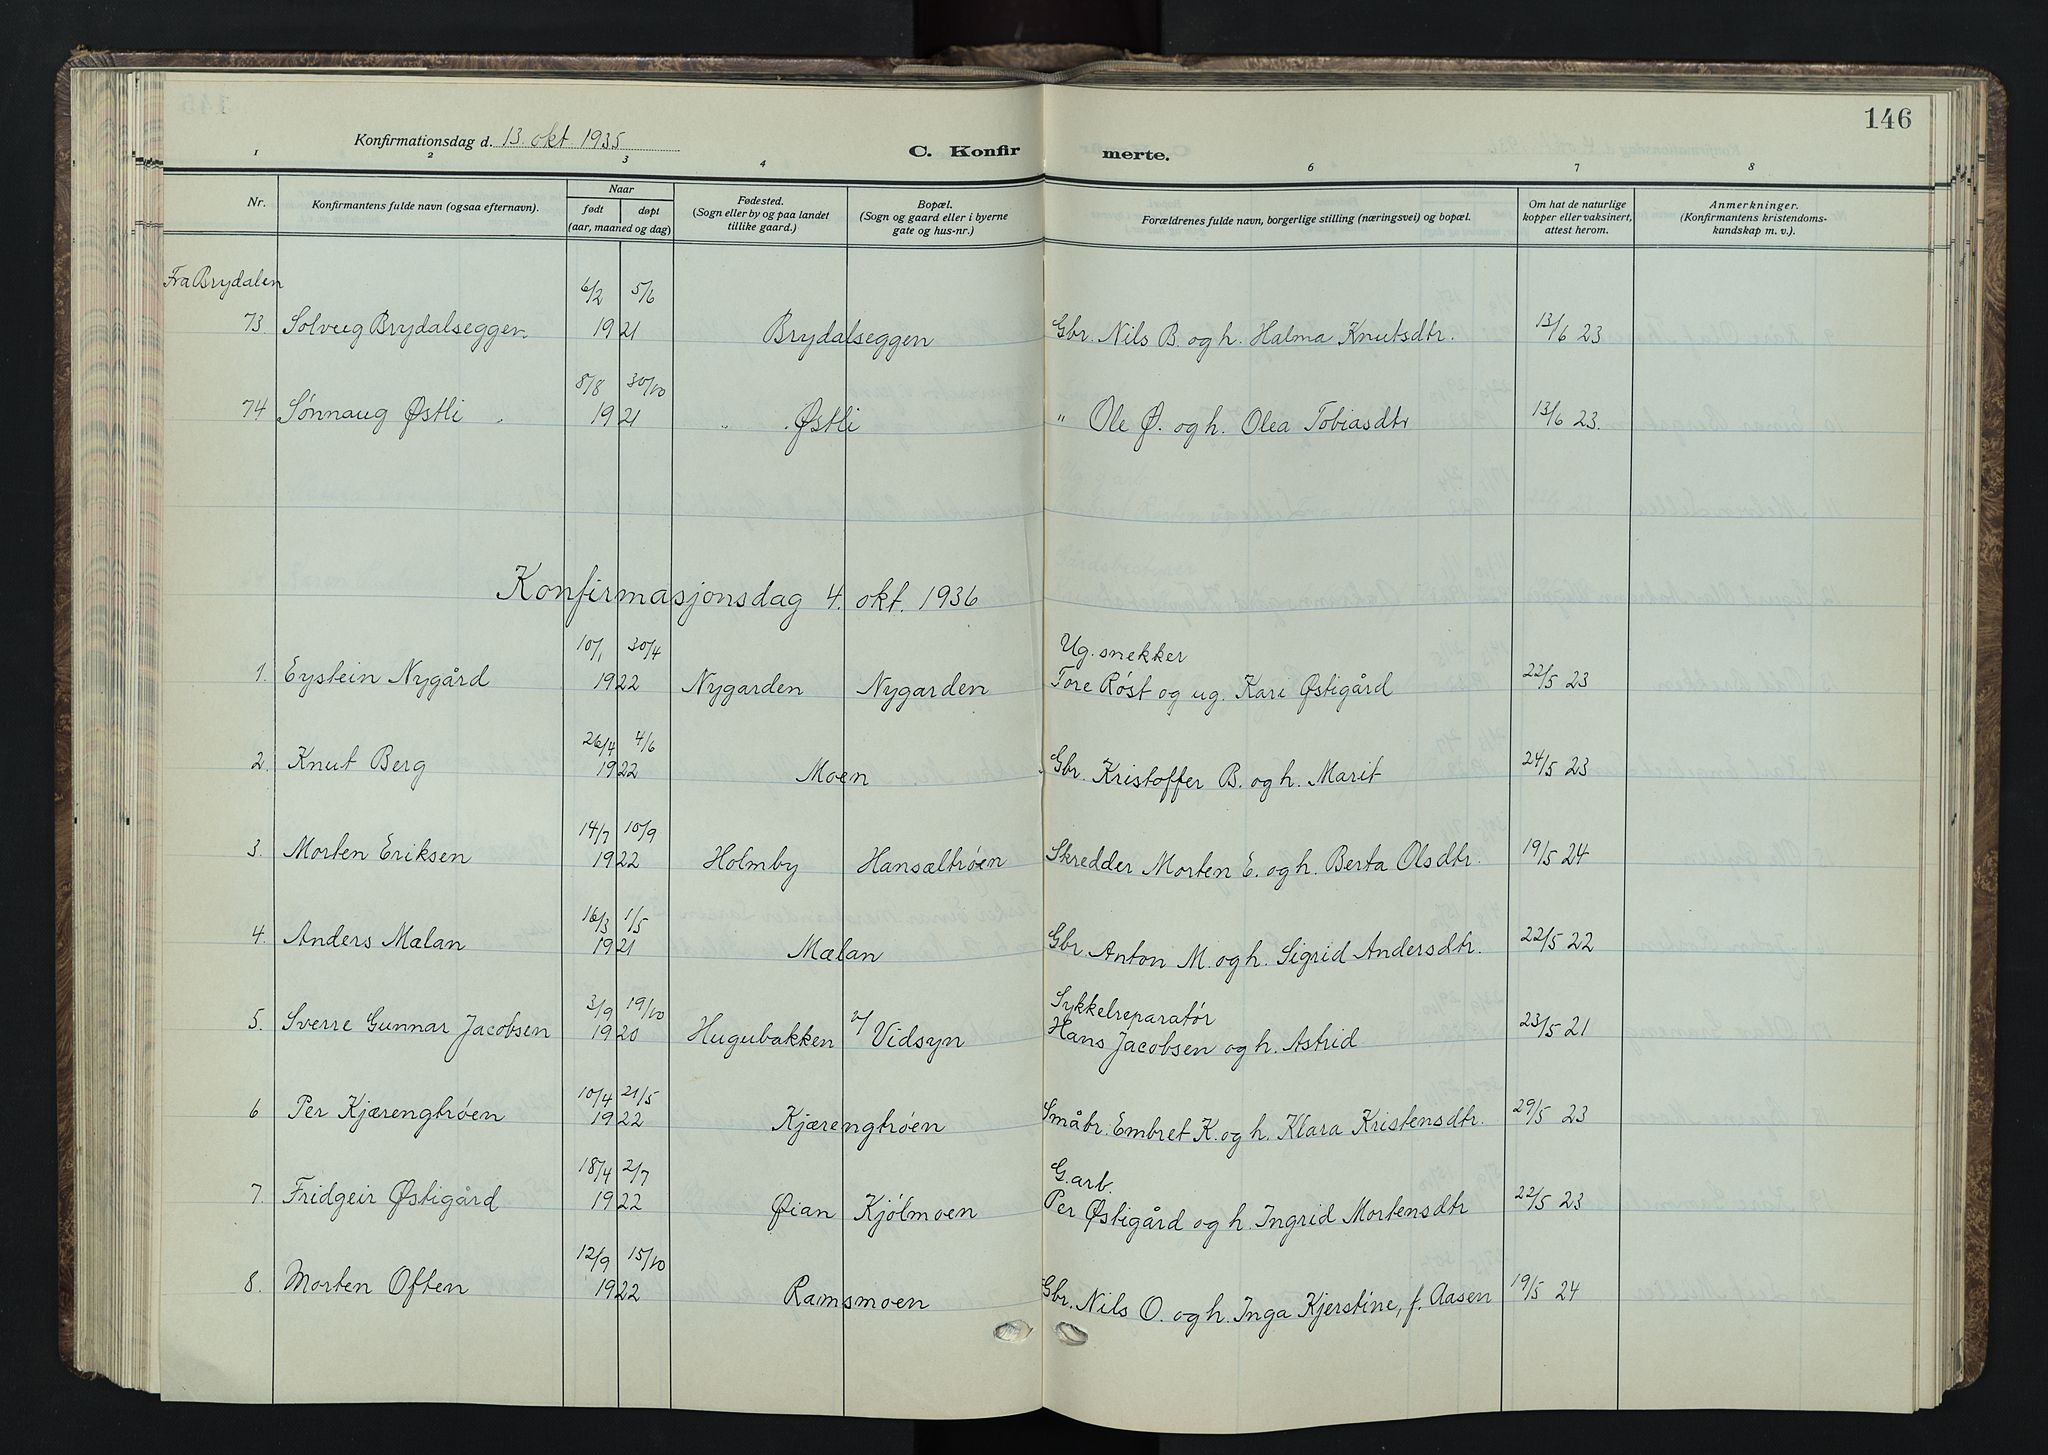 146
Konfirmationsdag d. 13. okt. 1935
C. Konfirmerte.
1 2 3 4 6 7 8
Nr. Konfirmantens fulde navn (ogsaa efternavn). Naar født døpt (aar, maaned og dag) Fødested. (Sogn eller by og paa landet tillike gaard.) Bopæl. (Sogn og gaard eller i byerne gate og hus-nr.) Forældrenes fulde navn, borgerlige stilling (næringsvei) og bopæl. Om hat de naturlige kopper eller vaksinert, attest herom. Anmerkninger. (Konfirmantens kristendoms-kundskap m. v.).
Fra Brydalen
6/2 5/6
73. Solveig Brydalseggen. 1921 Brydalseggen Gbr. Nils B. og h. Halma Knutsdtr. 13/6 23
8/8 30/10
74 Sønnaug Østli 1921 " Østli " Ole Ø. og h. Olea Tobiasdtr 13/6 23.
Konfirmasjonsdag 4. okt. 1936
10/1 30/4 Ug. snekker
1. Eystein Nygård 1922 Nygarden Nygarden Tore Røst og ug. Kari Østigård 22/5 23
26/4 4/6
2. Knut Berg 1922 Moen Gbr. Kristoffer B. og h. Marit 24/5 23
14/7 10/9
3. Morten Eriksen 1922 Holmby Hansæltrøen Skredder Morten E. og h. Berta Olsdtr. 19/5 24
16/3 1/5
4. Anders Mælan 1921 Mælan Gbr Anton M. og h. Sigrid Andersdtr. 22/5 22
3/9 19/10 Sykkelreparatør
5. Sverre Gunnar Jacobsen 1920 Hugubakken v/ Vidsyn Hans Jacobsen og h. Astrid 23/5 21
10/4 21/5
6 Per Kjærengtrøen 1922 Kjærengtrøen Småbr. Embret K. og h. Klara Kristensdtr. 29/5 23
18/4 2/7 G.arb.
7. Fridgeir Østigård 1922 Øian Kjølmoen Per Østigård og h. Ingrid Mortensdtr 22/5 23
12/9 15/10
8. Morten Often 1922 Ramsmoen Gbr. Nils O. og h. Inga Kjerstine, f. Aasen 19/5 24